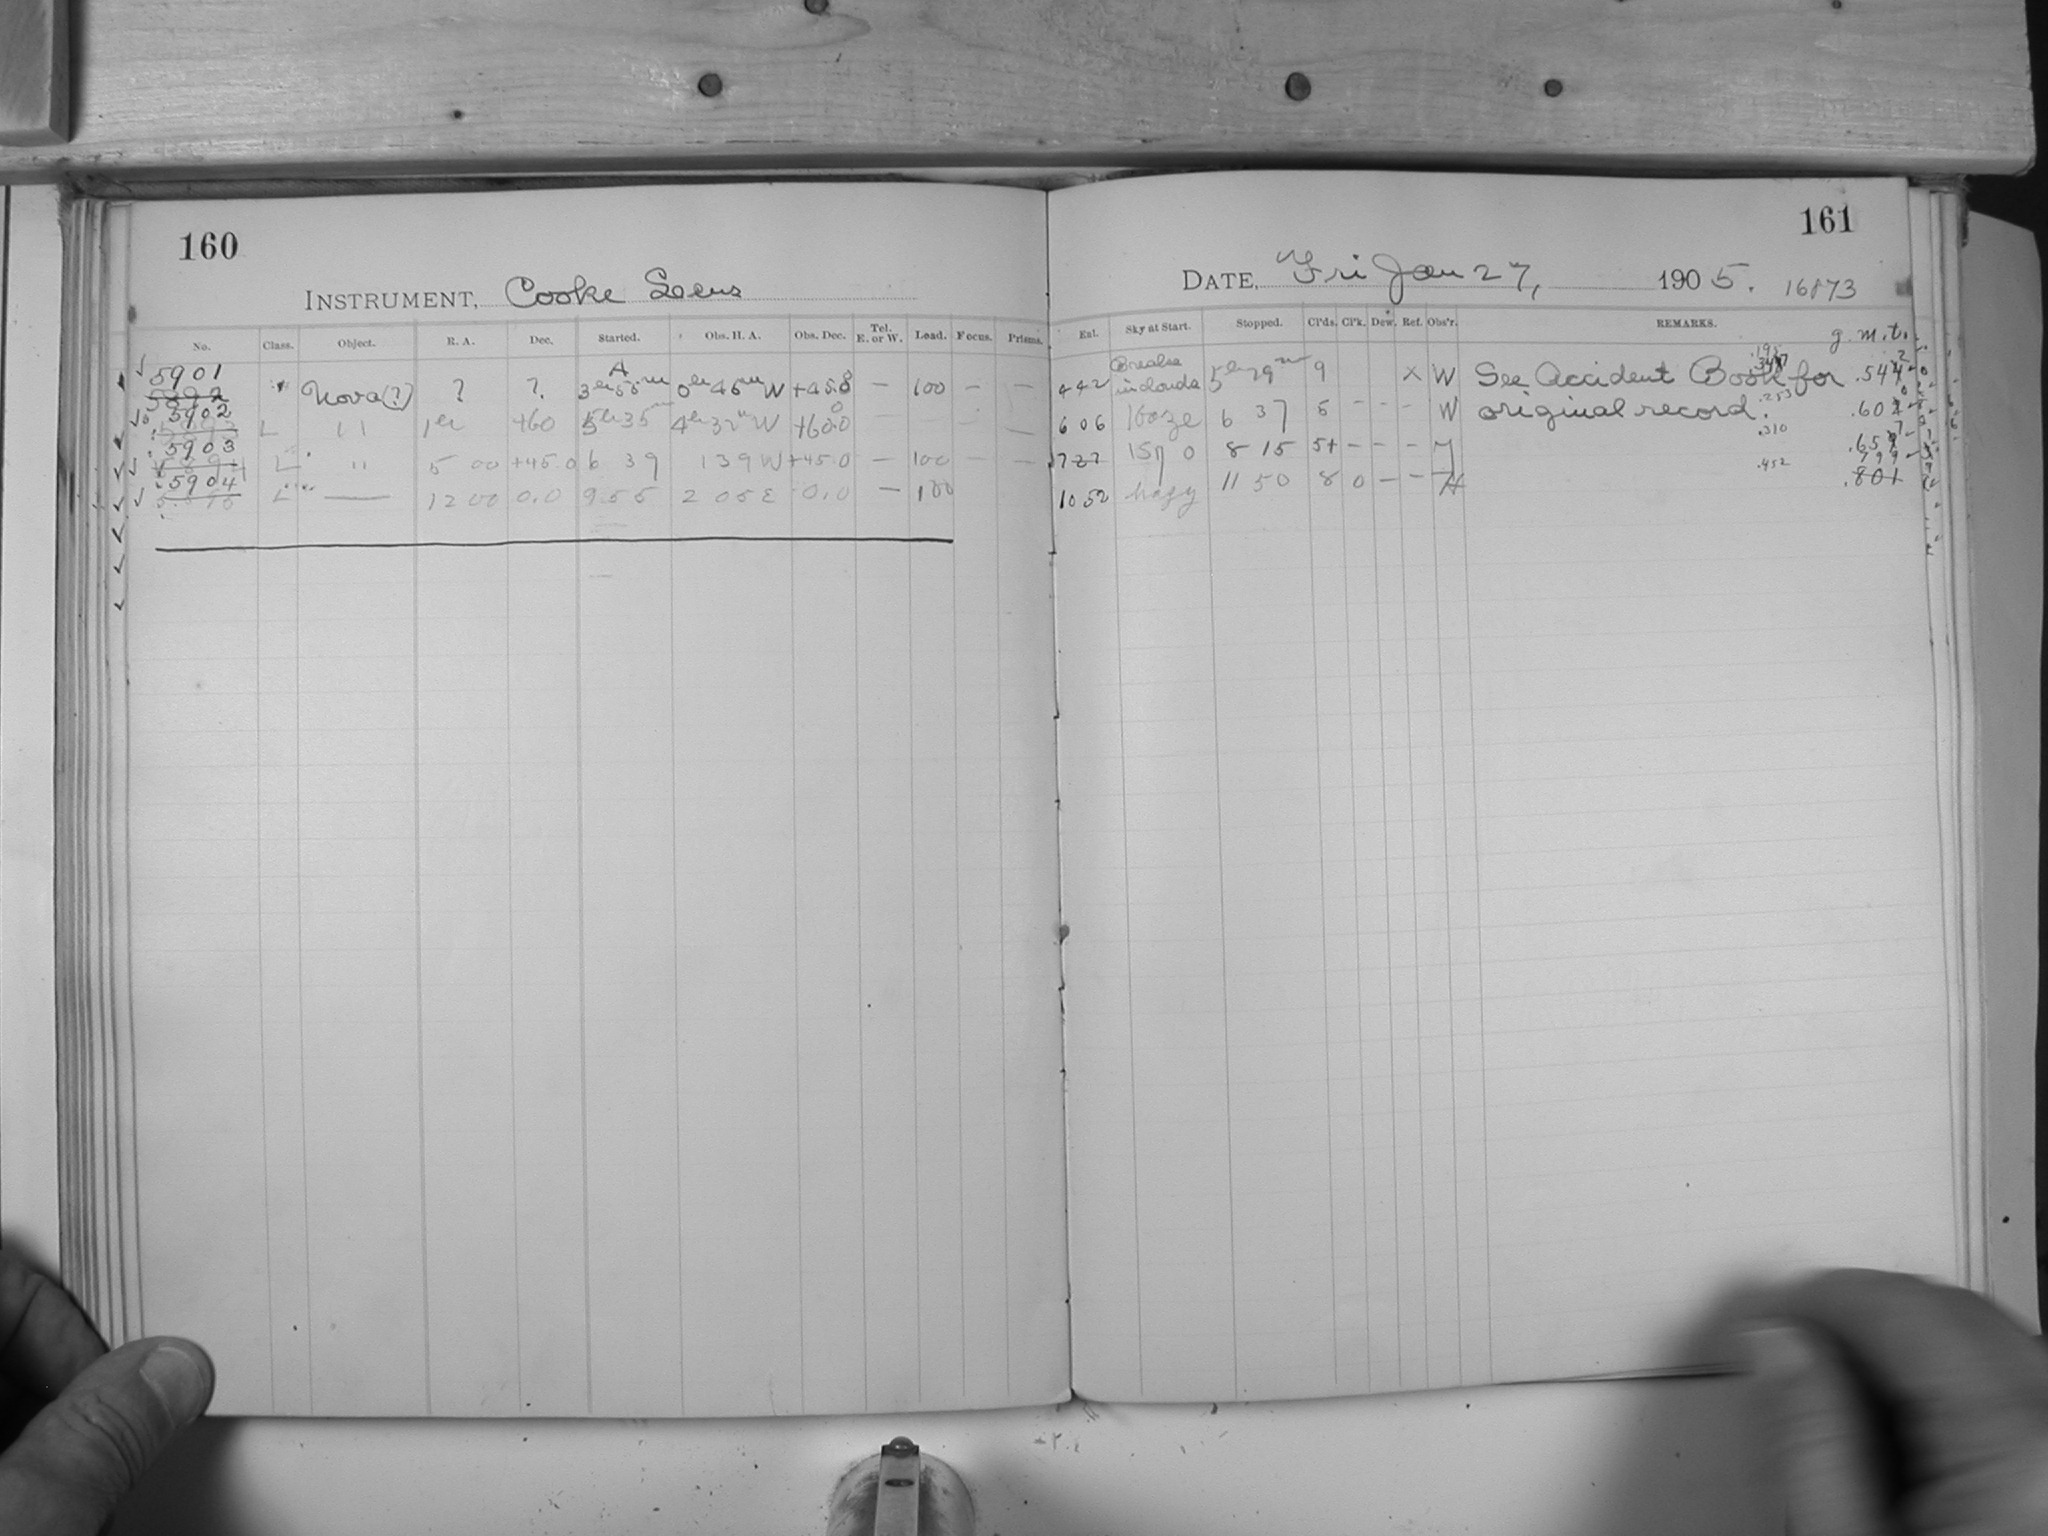 160
INSTRUMENT, Cooke Lens
No. Class. Object. R. A. Dec. Started. Obs. H. A. Obs. Dec. Tel. E. or W. Load. Focus. Prisms.
5901
5892 Nova(?) ? ? A 3h 55m 0h 45m W +45.8 — 100 — —
5902
L " 1h +60 5h 35m 4h 32m W +60.0 —
5903
L " 5 00 +45.0 6 39 1 39 W +45.0 — 100 — —
5904
L — 12 00 0.0 9 55 2 05 E 0.0 — 100
161
DATE, Fri Jan 27, 1905. 16873
Ent. Sky at Start. Stopped. Cl'ds. Cl'k. Dew. Ref. Obs'r. REMARKS. g. m. t.
4 42 Breaks in clouds 5h 29m 9 x W See Accident Book for .544
6 06 Haze 6 37 5 - - - W original record. .253
7 27 8 15 5+ - - - .310
10 52 hazy 11 50 8 0 - - H .452 .801